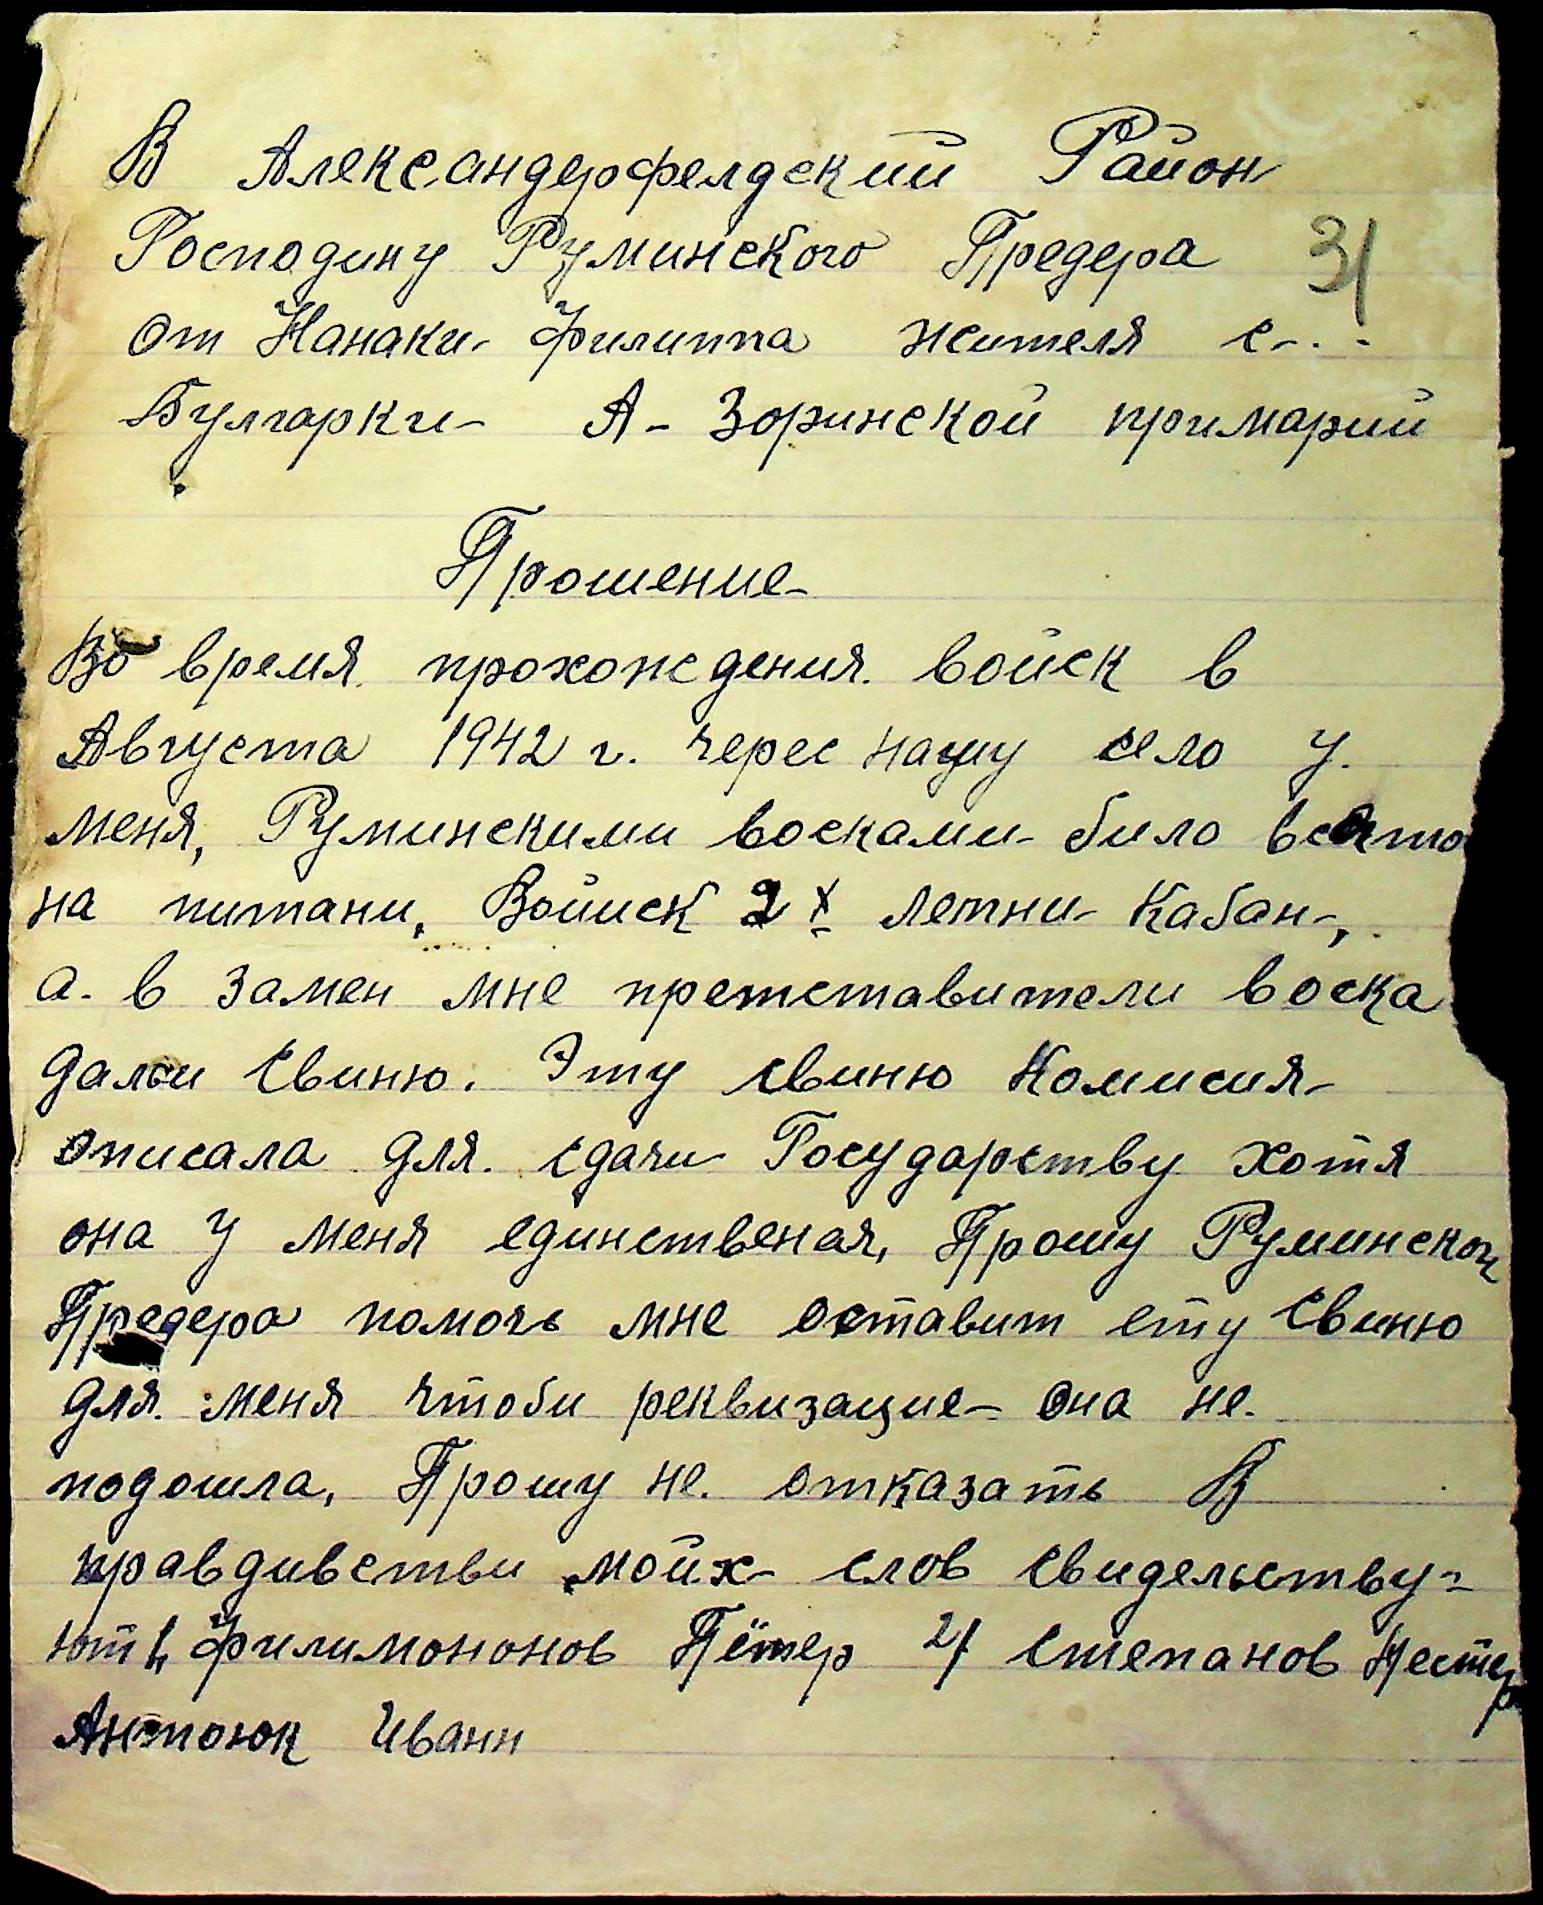 В Александерфелдский Район
Господину Руминского Предера
31
от Канаки Филиппа жителя с.
Булгарки А-Зоринской примарии
Прошение
Во время прохождения войск в
Августа 1942 г. черес нашу село у
меня, Руминскими восками било всято
на питани, Войиск 2х летни Кабан,
а в замен мне претставители воска
дали Свиню. Эту свиню Комисия
описала для сдачи Государству хотя
она у меня единственая, Прошу Руминског
Предера помочь мне оставит ету Свиню
для меня чтоби реквизацие она не
подошла, Прошу не отказать В
правдивстви мойх слов Свидельству-
ють, Филимононов Пётер И Степанов Нестер
Антоюк Иванн